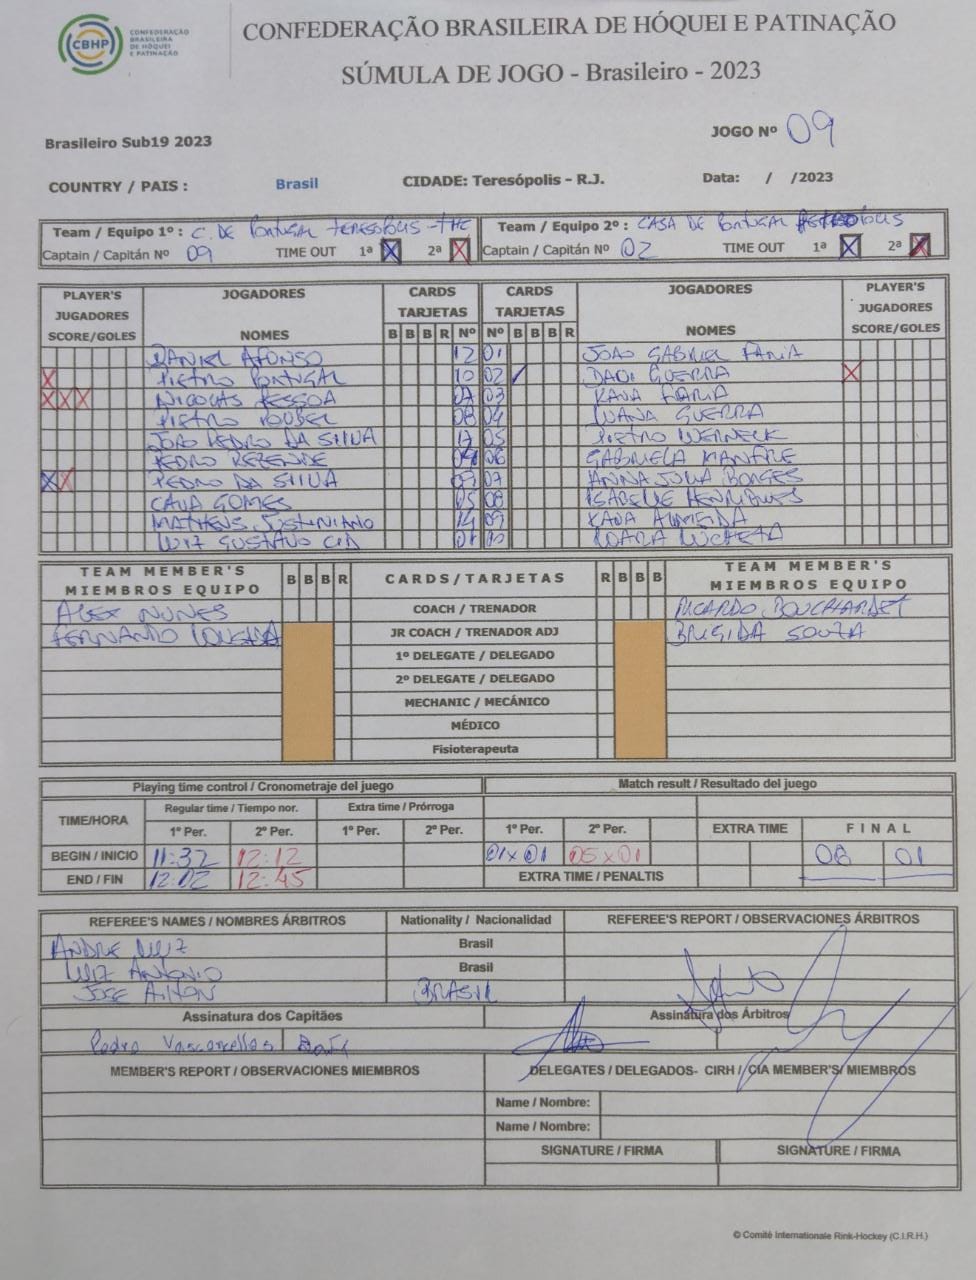 CBHP CONFEDERAÇÃO BRASILEIRA DE HÓQUEI E PATINAÇÃO
CONFEDERAÇÃO BRASILEIRA DE HÓQUEI E PATINAÇÃO
SÚMULA DE JOGO - Brasileiro - 2023
JOGO Nº 09
Brasileiro Sub19 2023
COUNTRY / PAIS : Brasil CIDADE: Teresópolis - R.J. Data: / /2023
Team / Equipo 1º : C. DE PORTUGAL TERESÓPOLIS - THC Team / Equipo 2º : CASA DE PORTUGAL PETRÓPOLIS
Captain / Capitán Nº 09 TIME OUT 1ª X 2ª X Captain / Capitán Nº 02 TIME OUT 1ª X 2ª X
PLAYER'S JOGADORES CARDS CARDS JOGADORES PLAYER'S
JUGADORES TARJETAS TARJETAS JUGADORES
SCORE/GOLES NOMES B B B R Nº Nº B B B R NOMES SCORE/GOLES
DANIEL AFONSO 12 01 JOÃO GABRIEL FARIA
X PIETRO PORTUGAL 10 02 / DAVI GUERRA X
X X X NICOLAS PESSOA 07 03 KAUÃ FARIA
PIETRO 08 04 LUANA GUERRA
JOÃO PEDRO DA SILVA 17 05 PIETRO WERNECK
PEDRO REZENDE 04 06 GABRIELA MANFRE
X X PEDRO DA SILVA 09 07 ANNA JULIA BORGES
CAUA GOMES 05 08 ISABELLE HENRIQUES
MATHEUS JUSTINIANO 14 09 KAUA ALMEIDA
LUIZ GUSTAVO CID 01 10
TEAM MEMBER'S B B B R CARDS/TARJETAS R B B B TEAM MEMBER'S
MIEMBROS EQUIPO MIEMBROS EQUIPO
ALEX NUNES COACH / TRENADOR RICARDO
FERNANDO JR COACH / TRENADOR ADJ BRIGIDA SOUZA
1º DELEGATE / DELEGADO
2º DELEGATE / DELEGADO
MECHANIC / MECÁNICO
MÉDICO
Fisioterapeuta
Playing time control / Cronometraje del juego Match result / Resultado del juego
TIME/HORA Regular time / Tiempo nor. Extra time / Prórroga
1º Per. 2º Per. 1º Per. 2º Per. 1º Per. 2º Per. EXTRA TIME F I N A L
BEGIN / INICIO 11:32 12:12 01x01 05x01 06 01
END / FIN 12:02 12:45 EXTRA TIME / PENALTIS
REFEREE'S NAMES / NOMBRES ÁRBITROS Nationality / Nacionalidad REFEREE'S REPORT / OBSERVACIONES ÁRBITROS
ANDRE LUIZ Brasil
LUIZ ANTONIO Brasil
JOSE AILTON BRASIL
Assinatura dos Capitães Assinatura dos Árbitros
Pedro Vasconcellos
MEMBER'S REPORT / OBSERVACIONES MIEMBROS DELEGATES / DELEGADOS- CIRH / CIA MEMBER'S/ MIEMBROS
Name / Nombre:
Name / Nombre:
SIGNATURE / FIRMA SIGNATURE / FIRMA
© Comité Internationale Rink-Hockey (C.I.R.H.)